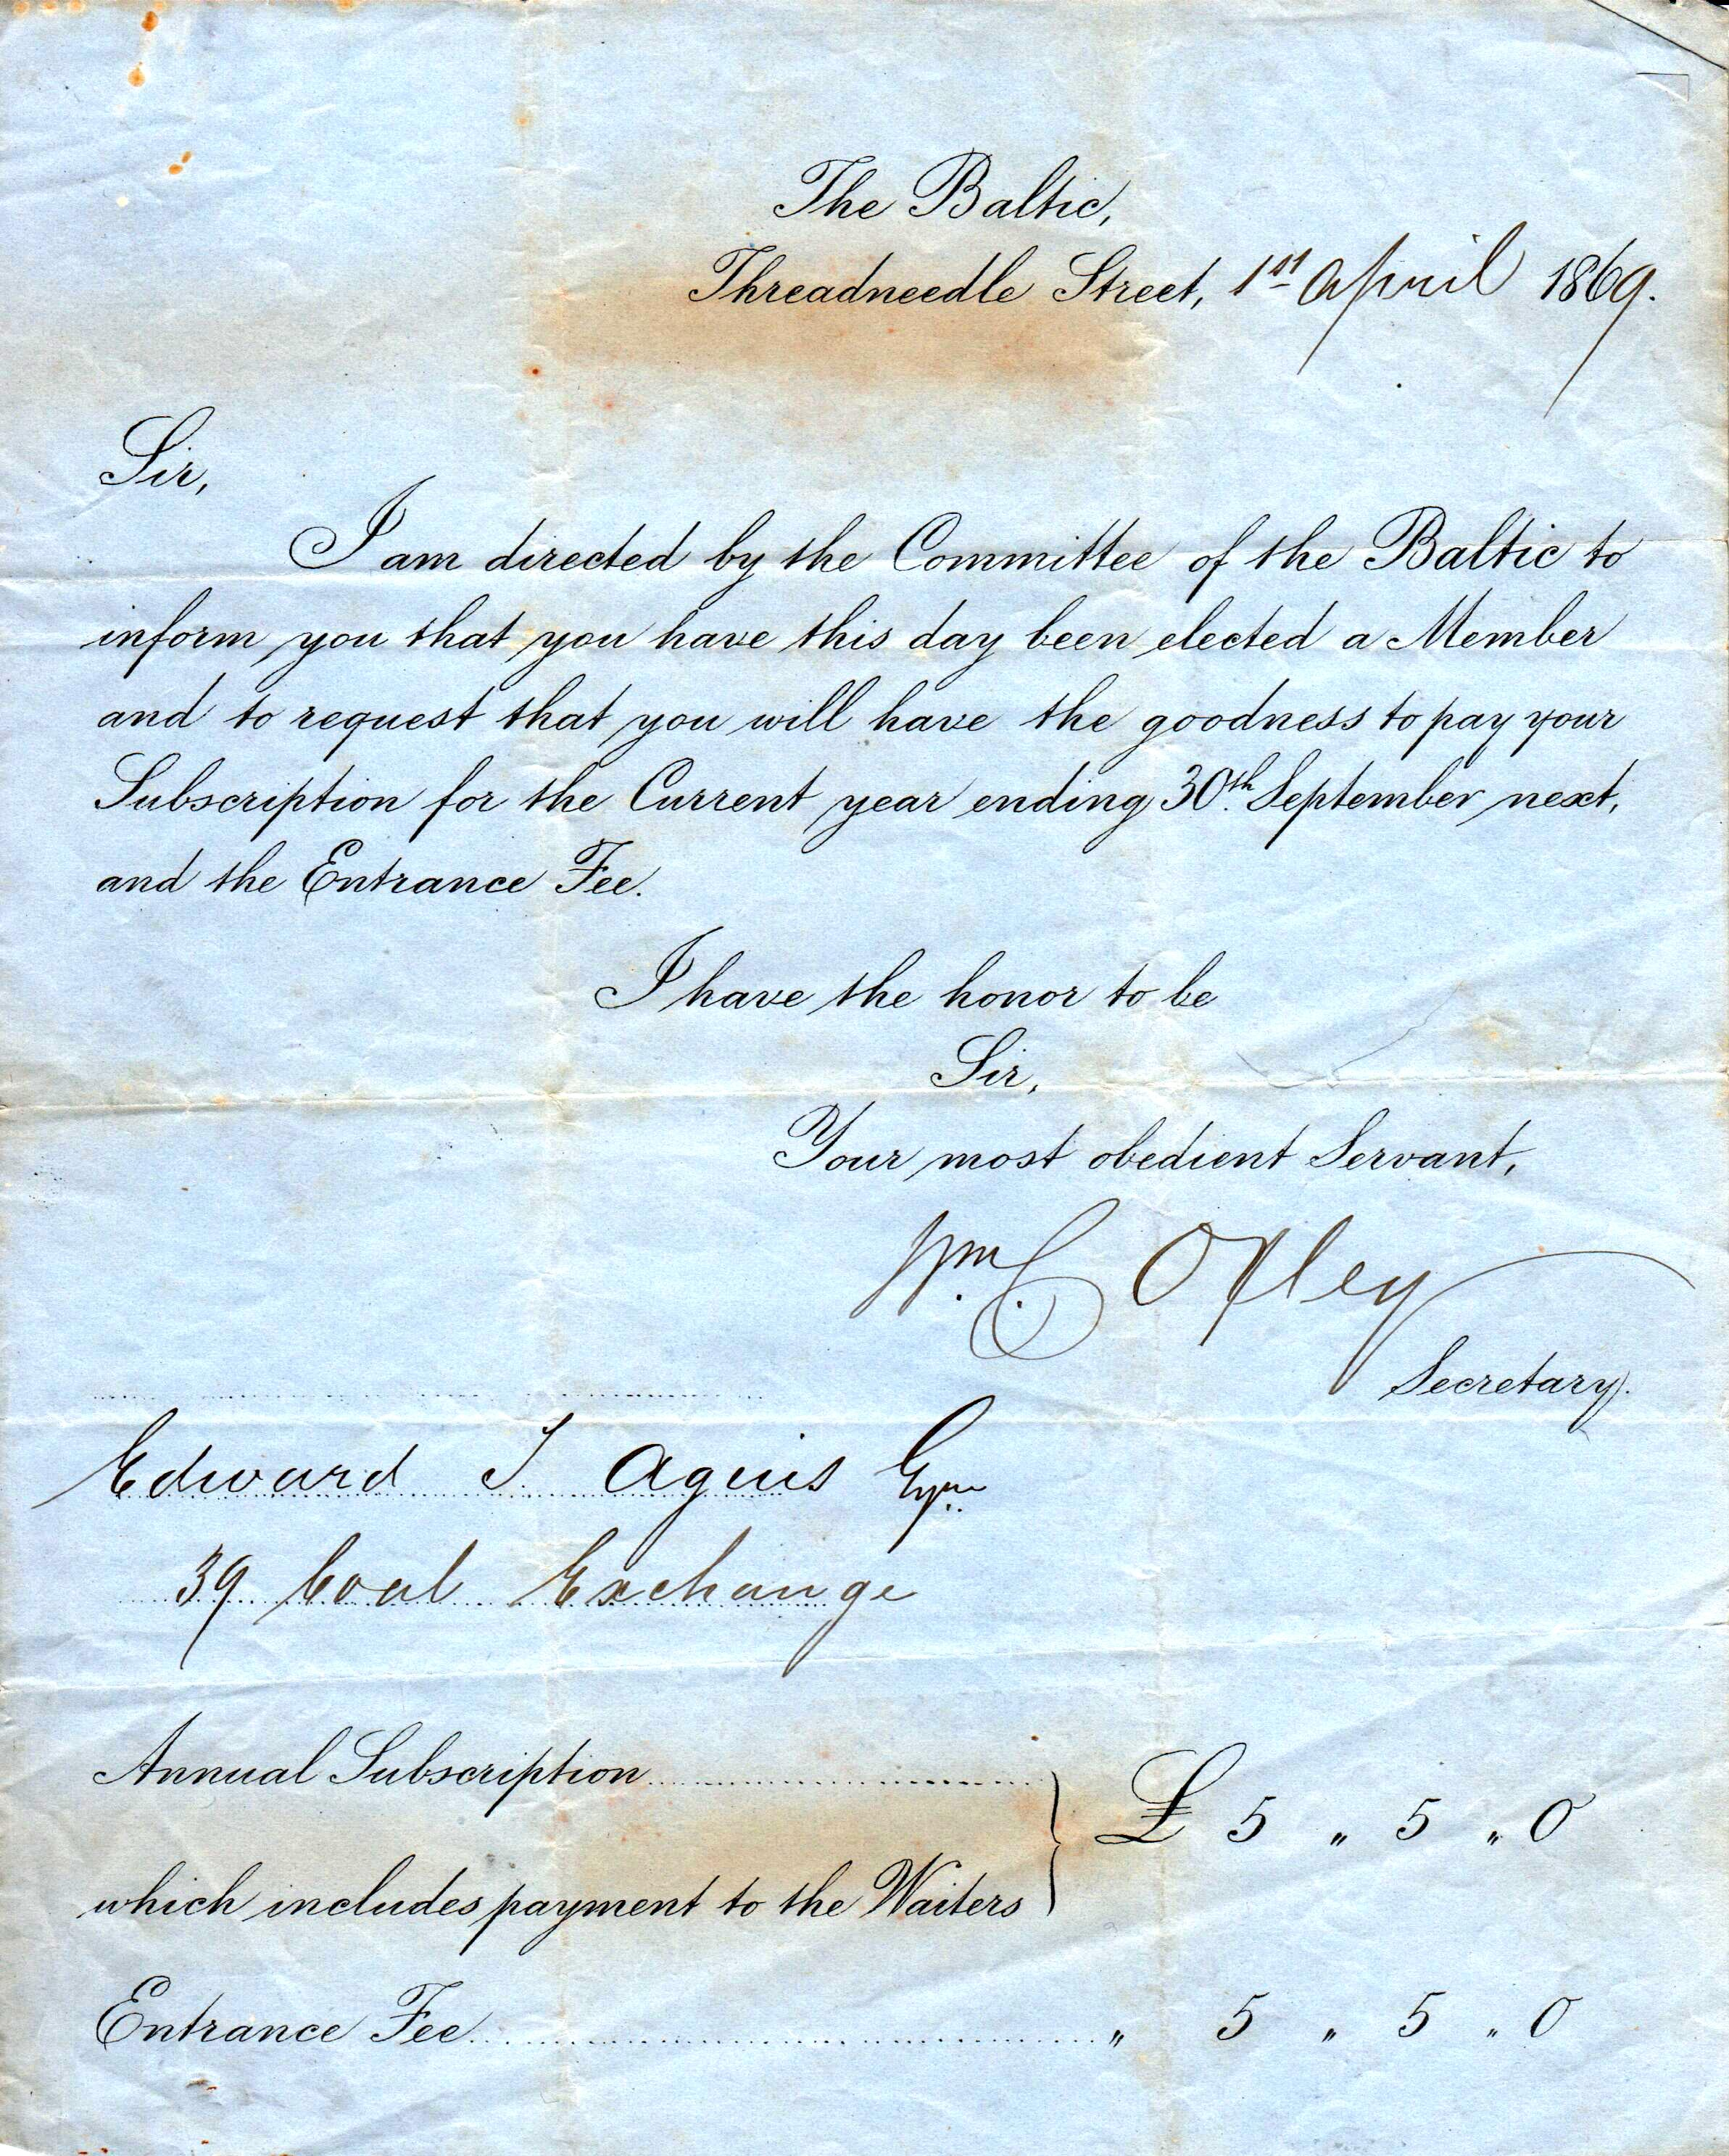 The Baltic,
Threadneedle Street, 1st April 1869.
Sir,
I am directed by the Committee of the Baltic to
inform you that you have this day been elected a Member
and to request that you will have the goodness to pay your
Subscription for the Current year ending 30th. September next,
and the Entrance Fee.
I have the honor to be
Sir,
Your most obedient Servant,
Wm. C. Oxley
Secretary.
Edward T. Agius Esqre.
39 Coal Exchange
Annual Subscription
£ 5 " 5 " 0
which includes payment to the Waiters
Entrance Fee " 5 " 5 " 0